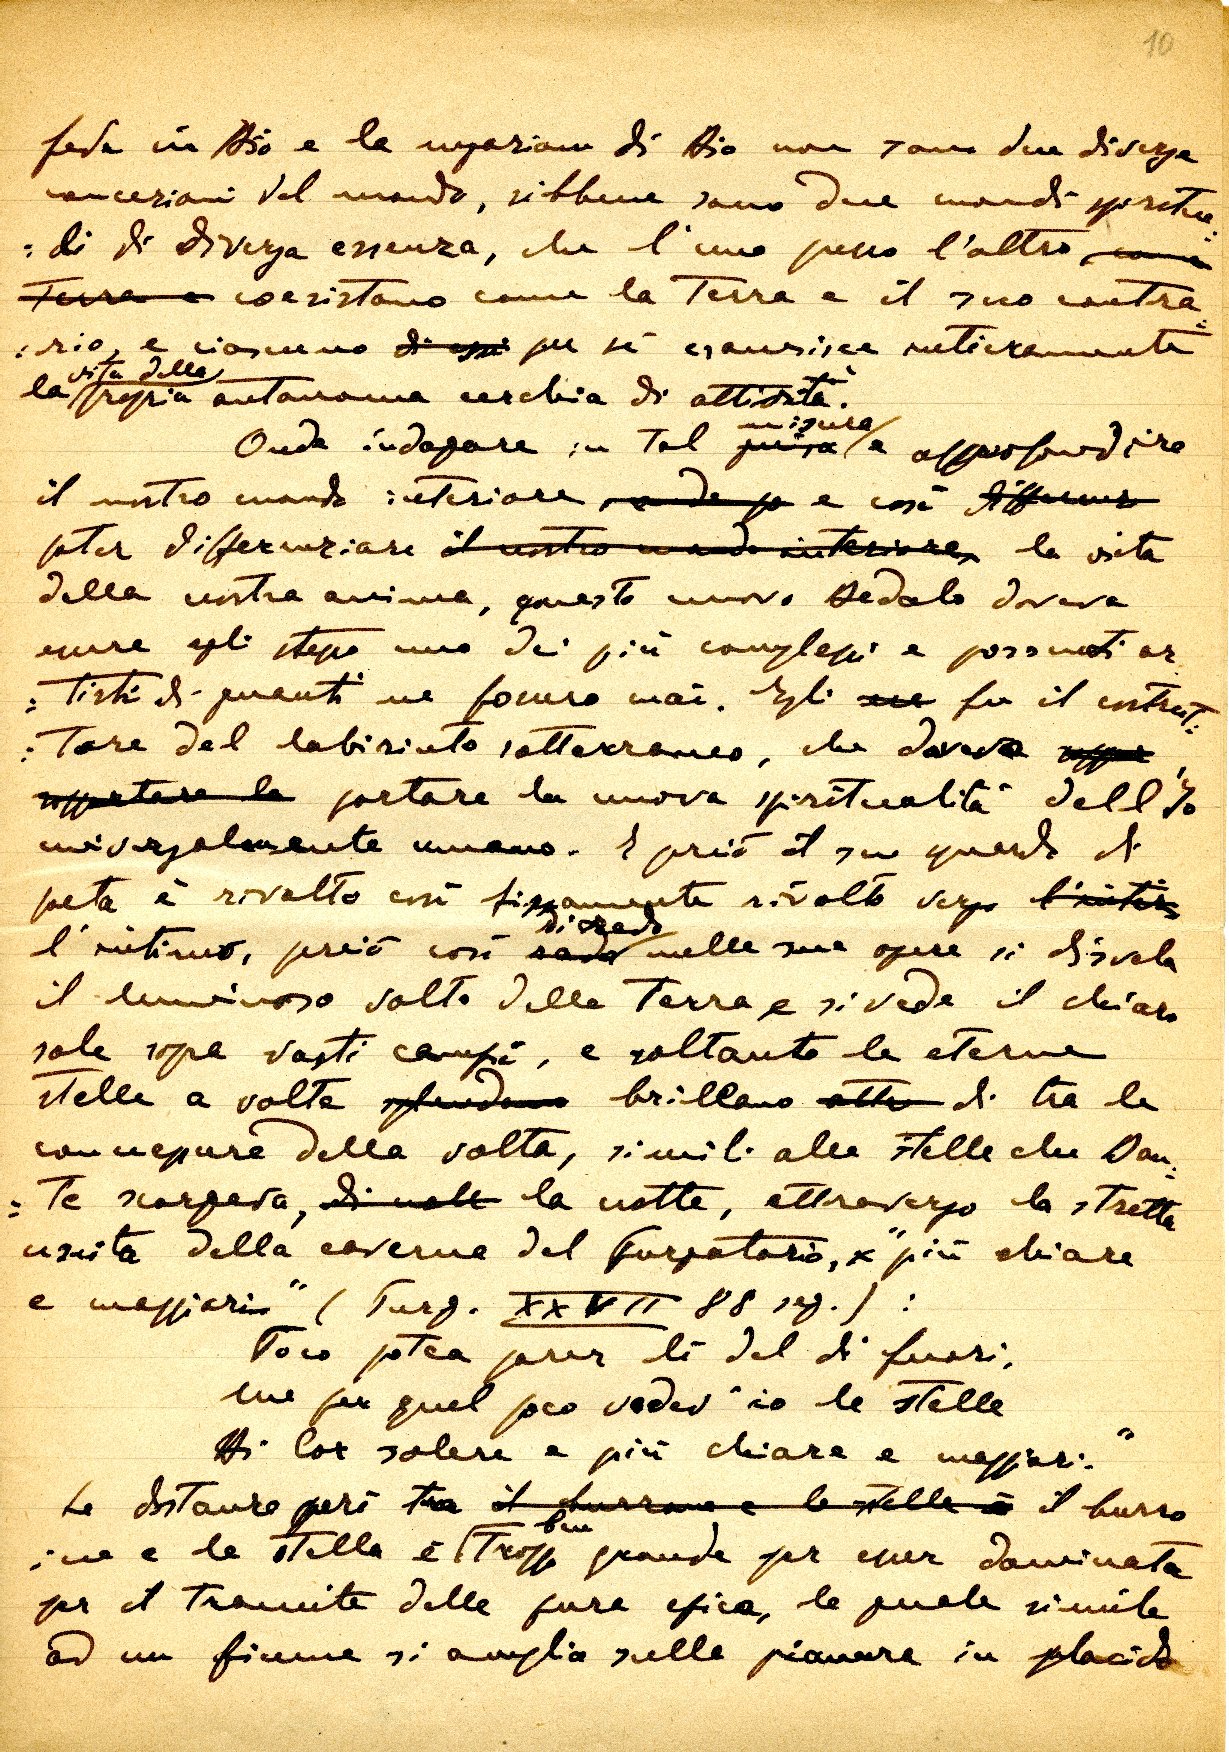 10
fede in Dio e la negazione di Dio non sono due diverse
concezioni del mondo, sibbene sono due mondi spiritua=
=li di diversa essenza, che l'uno presso l'altro, come
Terra e coesistono come la Terra e il suo contra=
=rio, e ciascuno di essi per sè esaurisce interamente
vita della
la propria autonoma cerchia di attività.
misura
Onde indagare in tal guisa e approfondire
il nostro mondo interiore, onde po e così differenz
poter differenziare il nostro mondo interiore, la vita
della nostra anima, questo nuovo Dedalo doveva
essere egli stesso uno dei più complessi e possenti ar
=tisti di quanti ne fossero mai. Egli era fu il costrut=
=tore del labirinto sotterraneo, che doveva
apportare la portare la nuova spiritualità dell'Io
universalmente umano. E perciò il suo sguardo di
poeta è rivolto così fissamente rivolto verso l'inter
di rado
l'intimo, perciò così rado nelle sue opere si disvela
il luminoso volto della Terra e si vede il chiaro
sole sopra vasti campi, e soltanto le eterne
stelle a volte splendono brillano attr di tra le
connessure della volta, simili alle stelle che Dan=
=te scorgeva, di nott la notte, attraverso la stretta
uscita della caverna del Purgatorio, "più chiare
e maggiori" (Purg. XXVII 88 seg.) :
Poco potea parer lì del di fuori,
ma per quel poco vedev'io le stelle
Di lor solere e più chiare e maggiori."
La distanza però tra il burrone e le stelle è il burro
ben
=ne e le stelle è troppo grande per esser dominata
per il tramite della pura epica, la quale simile
ad un fiume si amplia sulle pianure in placido